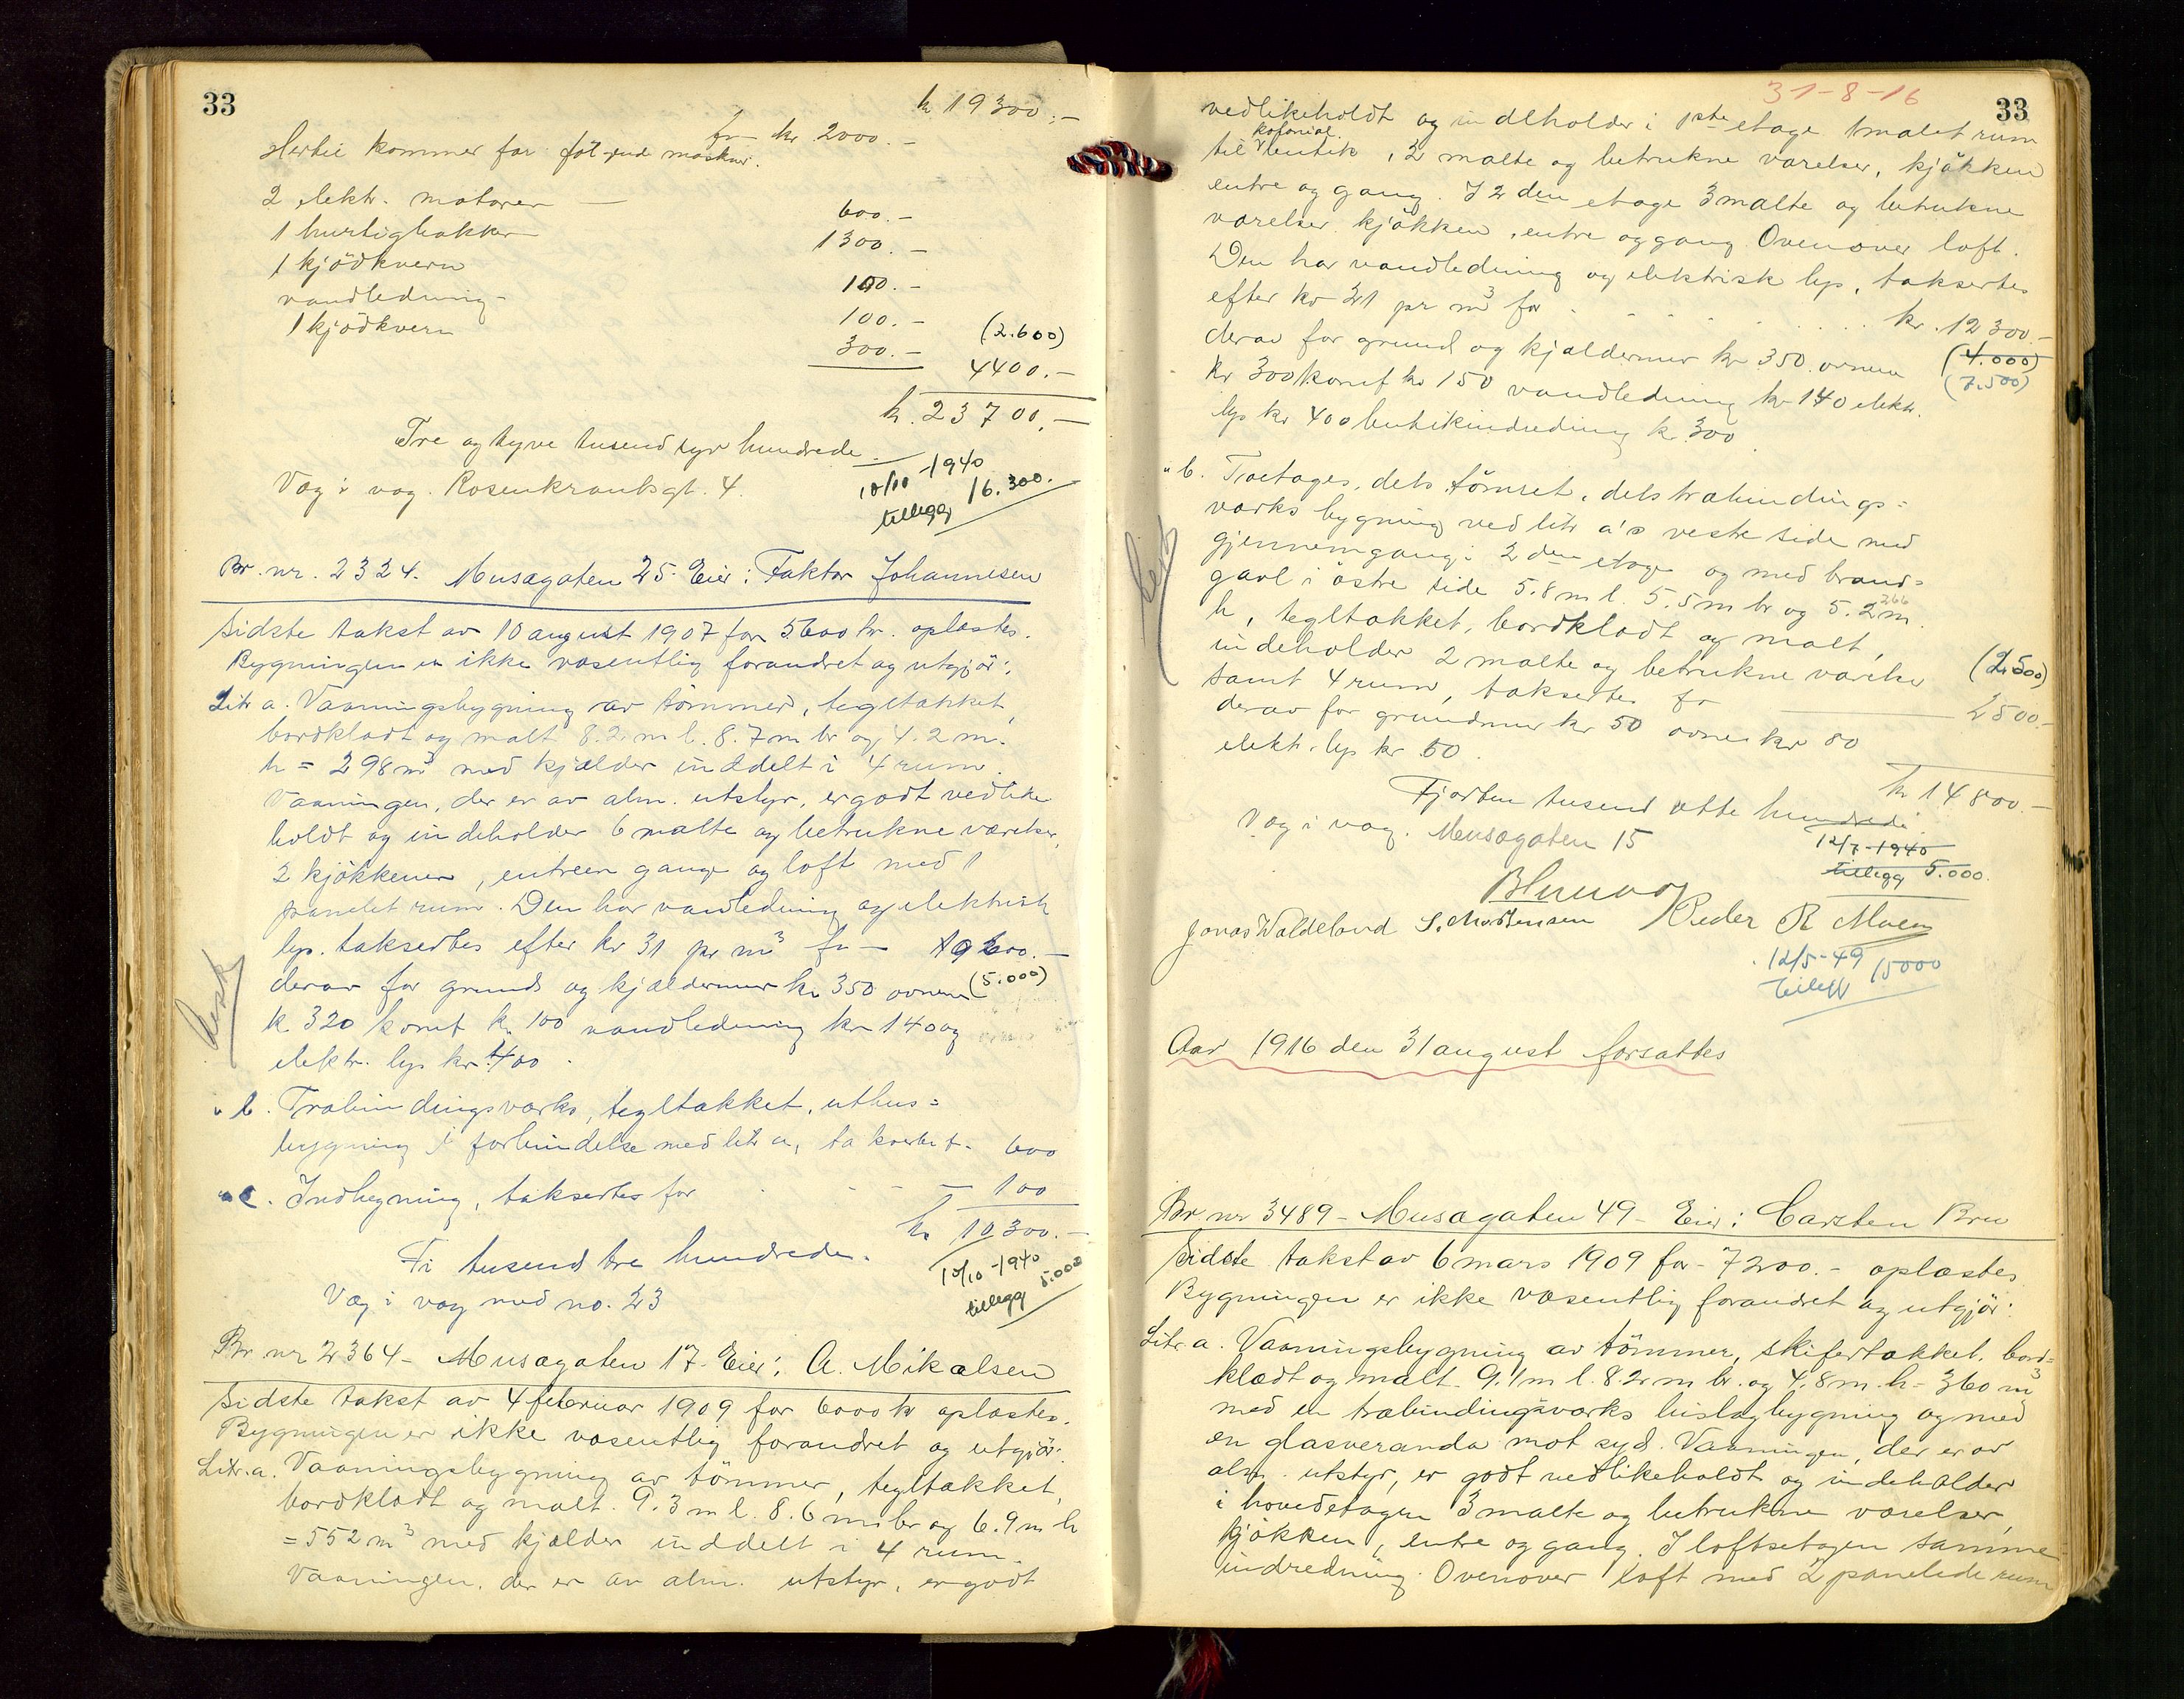 33
kr 19300.-
Hertil kommer for følgende maskiner. for kr 2000.-
2 elektr. motorer — 600.-
1 hurtighakker 1300.-
1 kjödkvern 100.-
vandledning - 100.- (2.600)
1 kjödkvern 300.- 4400.-
kr. 23700.-
Tre og tyve tusend syv hundrede.
10/10-1940
Væg i væg. Rosenkrantsgt. 4.
tillegg 16.300.
Br. nr. 2324. Musægaten 25. Eier: Faktor Johannesen
Sidste takst av 10 august 1907 for 5600 kr. oplæstes.
Bygningen er ikke væsentlig forandret og utgjör:
Litr a. Vaaningsbygning av tömmer, tegltækket,
bordklædt og malt 8.2 m l. 8.7 m br og 4.2 m.
h = 298 m³ med kjælder inddelt i 4 rum.
Vaaningen, der er av alm. utstyr, er godt vedlike
holdt og indeholder 6 malte og betrukne værelser,
2 kjökkener, entreer gange og loft med 1
panelet rum. Den har vandledning og elektrisk
lys. taksertes efter kr 31 pr m³ for - 9600.-
derav for grund og kjældermur kr 350 ovnene (5.000)
kr 320 komf kr 100 vandledning kr 140 og
elektr. lys kr 400.
" b. Træbindingsværks, tegltækket, uthus=
bygning i forbindelse med litr a, taksertes f. 600
" c. Indhegning, taksertes for - - - 100
kr 10300.-
Ti tusend tre hundrede.
10/10-1940
tillegg 5.000
Væg i væg med no. 23
Br nr 2364 - Musægaten 17. Eier: A. Mikalsen
Sidste takst av 4 februar 1909 for 6000 kr oplæstes.
Bygningen er ikke væsentlig forandret og utgjör:
Litr. a. Vaaningsbygning av tömmer, tegltækket,
bordklædt og malt. 9.3 m l. 8.6 m br og 6.9 m h
= 552 m³ med kjælder inddelt i 4 rum.
Vaaningen, der er av alm. utstyr, er godt
31-8-16
33
vedlikeholdt og indeholder i 1ste etage 1 malet rum
til kolonial butik, 2 malte og betrukne værelser, kjökken
entre og gang. I 2den etage 3 malte og betrukne
værelser, kjökken, entre og gang. Ovenover loft.
Den har vandledning og elektrisk lys, taksertes
efter kr 21 pr m³ for . . . . . kr. 12300.-
derav for grund og kjældermur kr 350. ovnene (4.000)
kr 300 komf kr 150 vandledning kr 140 elektr. (7.500)
lys kr 400 butikindredning kr 300
" b. Toetages, dels tömret, dels træbindings=
værks bygning ved litr a's vestre side med
gjennemgang i 2den etage og med brand=
gavl i östre side 5.8 m l. 5.5 m br og 5.2 m. 266
h, tegltækket, bordklædt og malt,
indeholder 2 malte og betrukne værelser (2.500)
samt 4 rum, taksertes for — 2500.-
derav for grundmur kr 50 ovner kr 80
elektr. lys kr 50.
kr 14800.-
Fjorten tusend otte hundrede.
Væg i væg. Musægaten 15
12/7-1940
tillegg 5.000.
Jonas Waldeland S. Mortensen Peder R Moen
12/5-49
tillegg 15000
Aar 1916 den 31 august forsattes
Br nr 3489 - Musægaten 49 - Eier: Carsten Bru
Sidste takst av 6 mars 1909 for - 7200.- oplæstes
Bygningen er ikke væsentlig forandret og utgjör:
Litr. a. Vaaningsbygning av tömmer, skifertækket, bord=
klædt og malt. 9.1 m l. 8.2 m br. og 4.8 m. h = 360 m³
med en træbindingsværks bislagbygning og med
en glasveranda mot syd. Vaaningen, der er av
alm. utstyr, er godt vedlikeholdt og indeholder
i hovedetagen 3 malte og betrukne værelser,
kjökken, entre og gang. I loftsetagen samme
indredning. Ovenover loft med 2 panelede rum